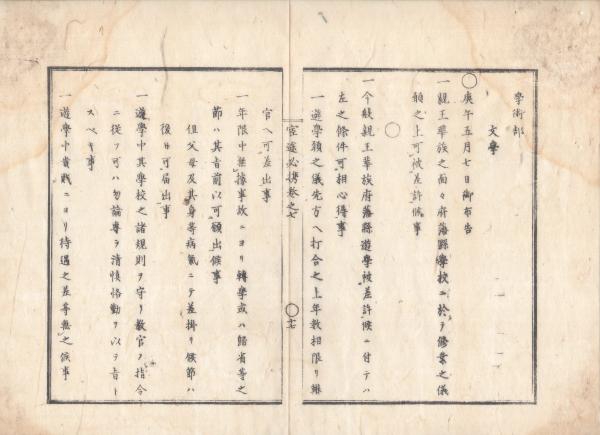 學術部
文學
○庚午五月七日御布告
一親王華族之面々府藩縣學校ニ於テ修業之儀
願之上可被差許候事
○
一今般親王華族府藩縣遊學被差許候ニ付テハ
左之條件可相心得事
一遊學願之儀先方ヘ打合之上年数相限リ辨
官途必携巻之七
○ 十七
官ヘ可差出事
一年限中無據事故ニヨリ轉學或ハ歸省等之
節ハ其旨前以可願出候事
但父母及其身等病氣ニテ差掛リ候節ハ
後日可届出事
一遊學中其學校之諸規則ヲ守リ教官ノ指令
ニ從フ可ハ勿論專ラ清慎恪勤ヲ以テ旨ト
スベキ事
一遊學中貴賤ニヨリ待遇之差等無之候事